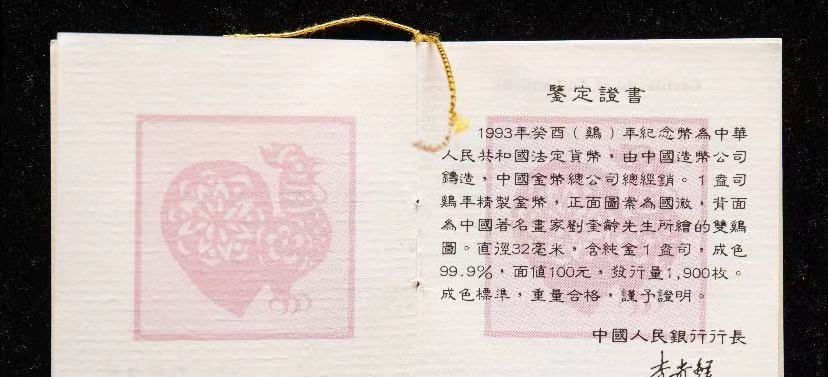 鑒定證書
1993年癸酉(鷄)年紀念幣為中華
人民共和國法定貨幣，由中國造幣公司
鑄造，中國金幣總公司總經銷。1盎司
鷄年精製金幣，正面圖案為國徽，背面
為中國著名畫家劉奎齡先生所繪的雙鷄
圖。直徑32毫米，含純金1盎司，成色
99.9%，面值100元，發行量1,900枚。
成色標準，重量合格，謹予證明。
中國人民銀行行長